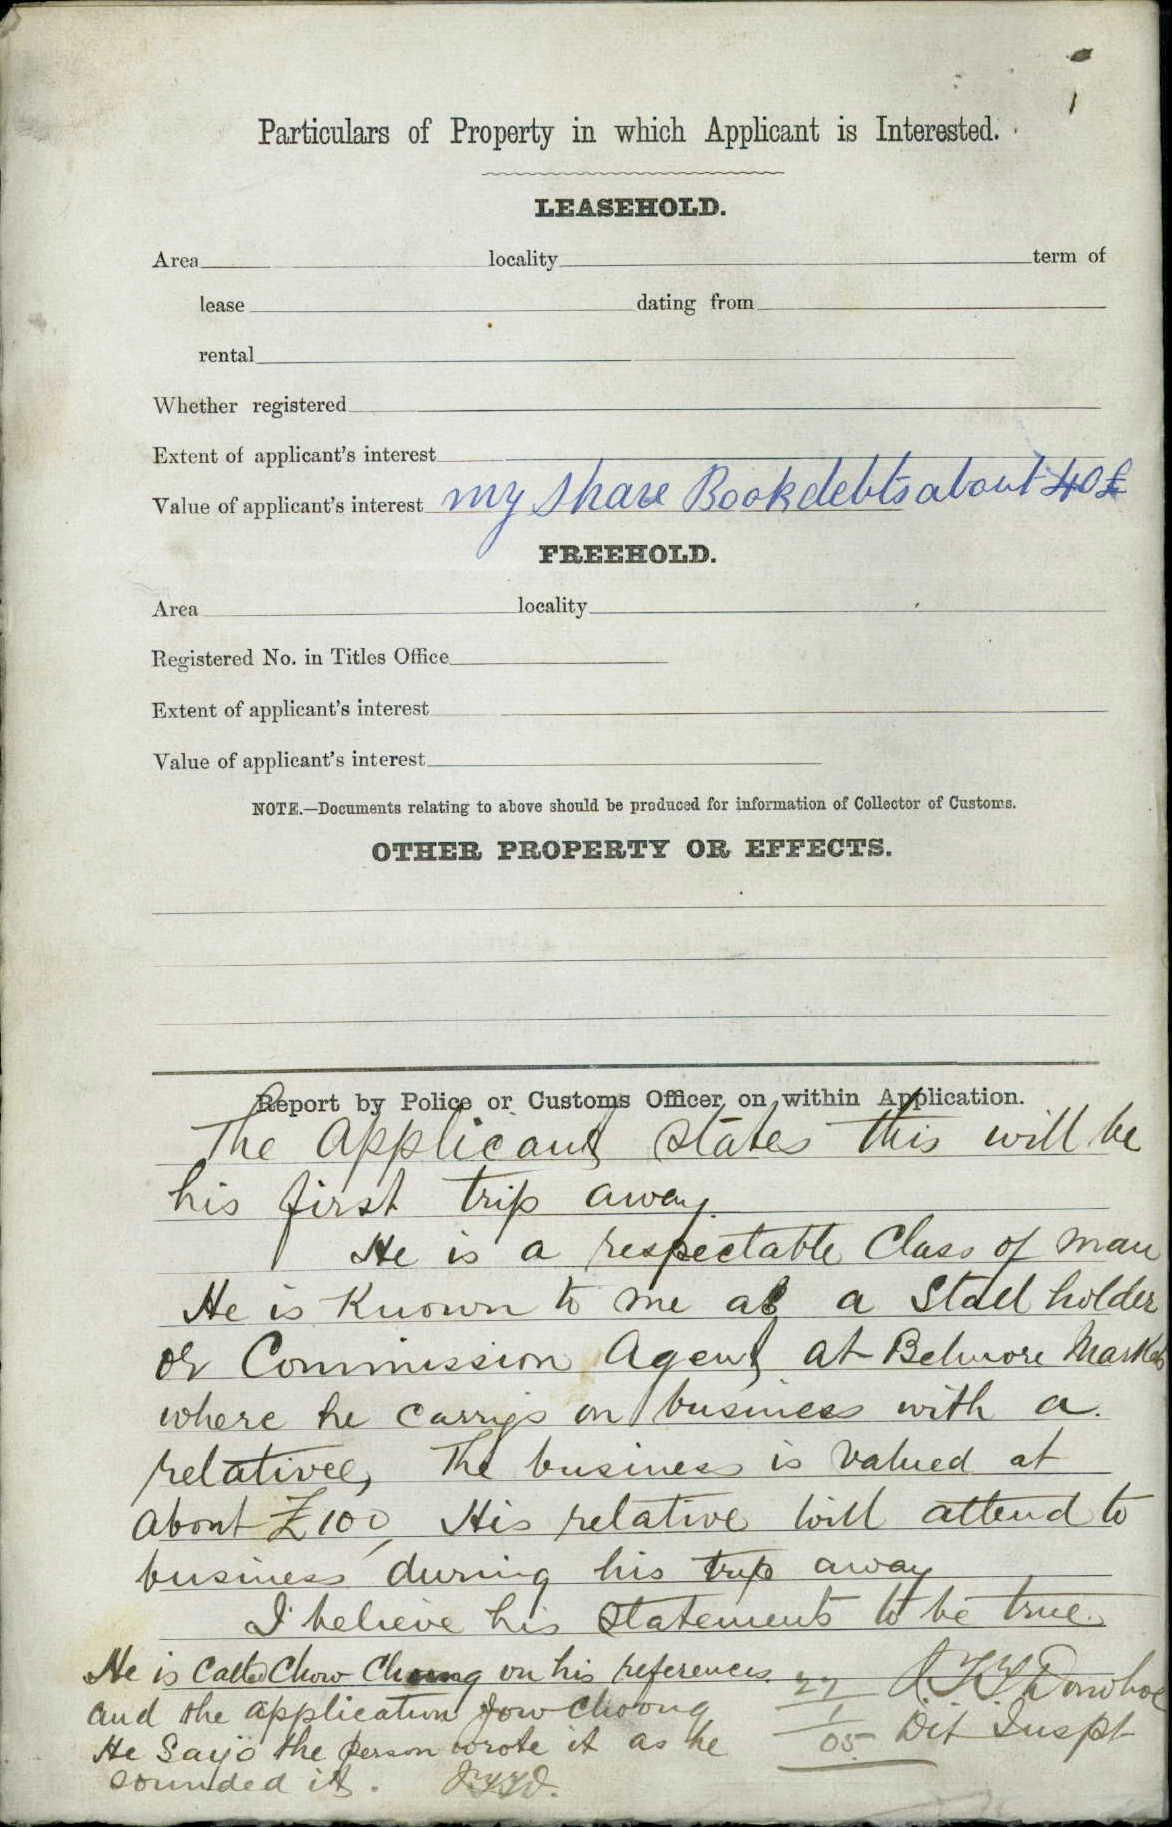 Particulars of Property in which Applicant is Interested.
LEASEHOLD.
Area locality term of
lease dating from
rental
Whether registered
Extent of applicant's interest
Value of applicant's interest my share Book debts about 40£
FREEHOLD.
Area locality
Registered No. in Titles Office
Extent of applicant's interest
Value of applicant's interest
NOTE.—Documents relating to above should be produced for information of Collector of Customs.
OTHER PROPERTY OR EFFECTS.
Report by Police or Customs Officer on within Application.
The applicant states this will be
his first trip away.
He is a respectable Class of man
He is Known to me as a Stall holder
or Commission Agent at Belmore Markets
where he carrys on business with a
relative, The business is valued at
about £100, His relative will attend to
business during his trip away
I believe his statements to be true.
He is Called Chow Choong on his references
and the application Jow Choong
He Says the person wrote it as he
sounded it.
27
1
05
Donohoe
Dit Inspt